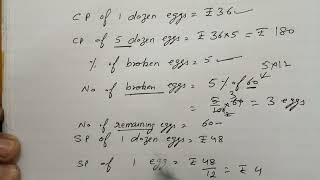 CP of 1 dozen eggs = ₹ 36 ✓
CP of 5 dozen eggs = ₹ 36×5 = ₹ 180
% of broken eggs = 5 ✓
5×12
No of broken eggs = 5 % of 60
= 5/100 × 60 = 3 eggs
No of remaining eggs = 60 -
SP of 1 dozen eggs = ₹ 48
SP of 1 egg = ₹ 48/12 = ₹ 4